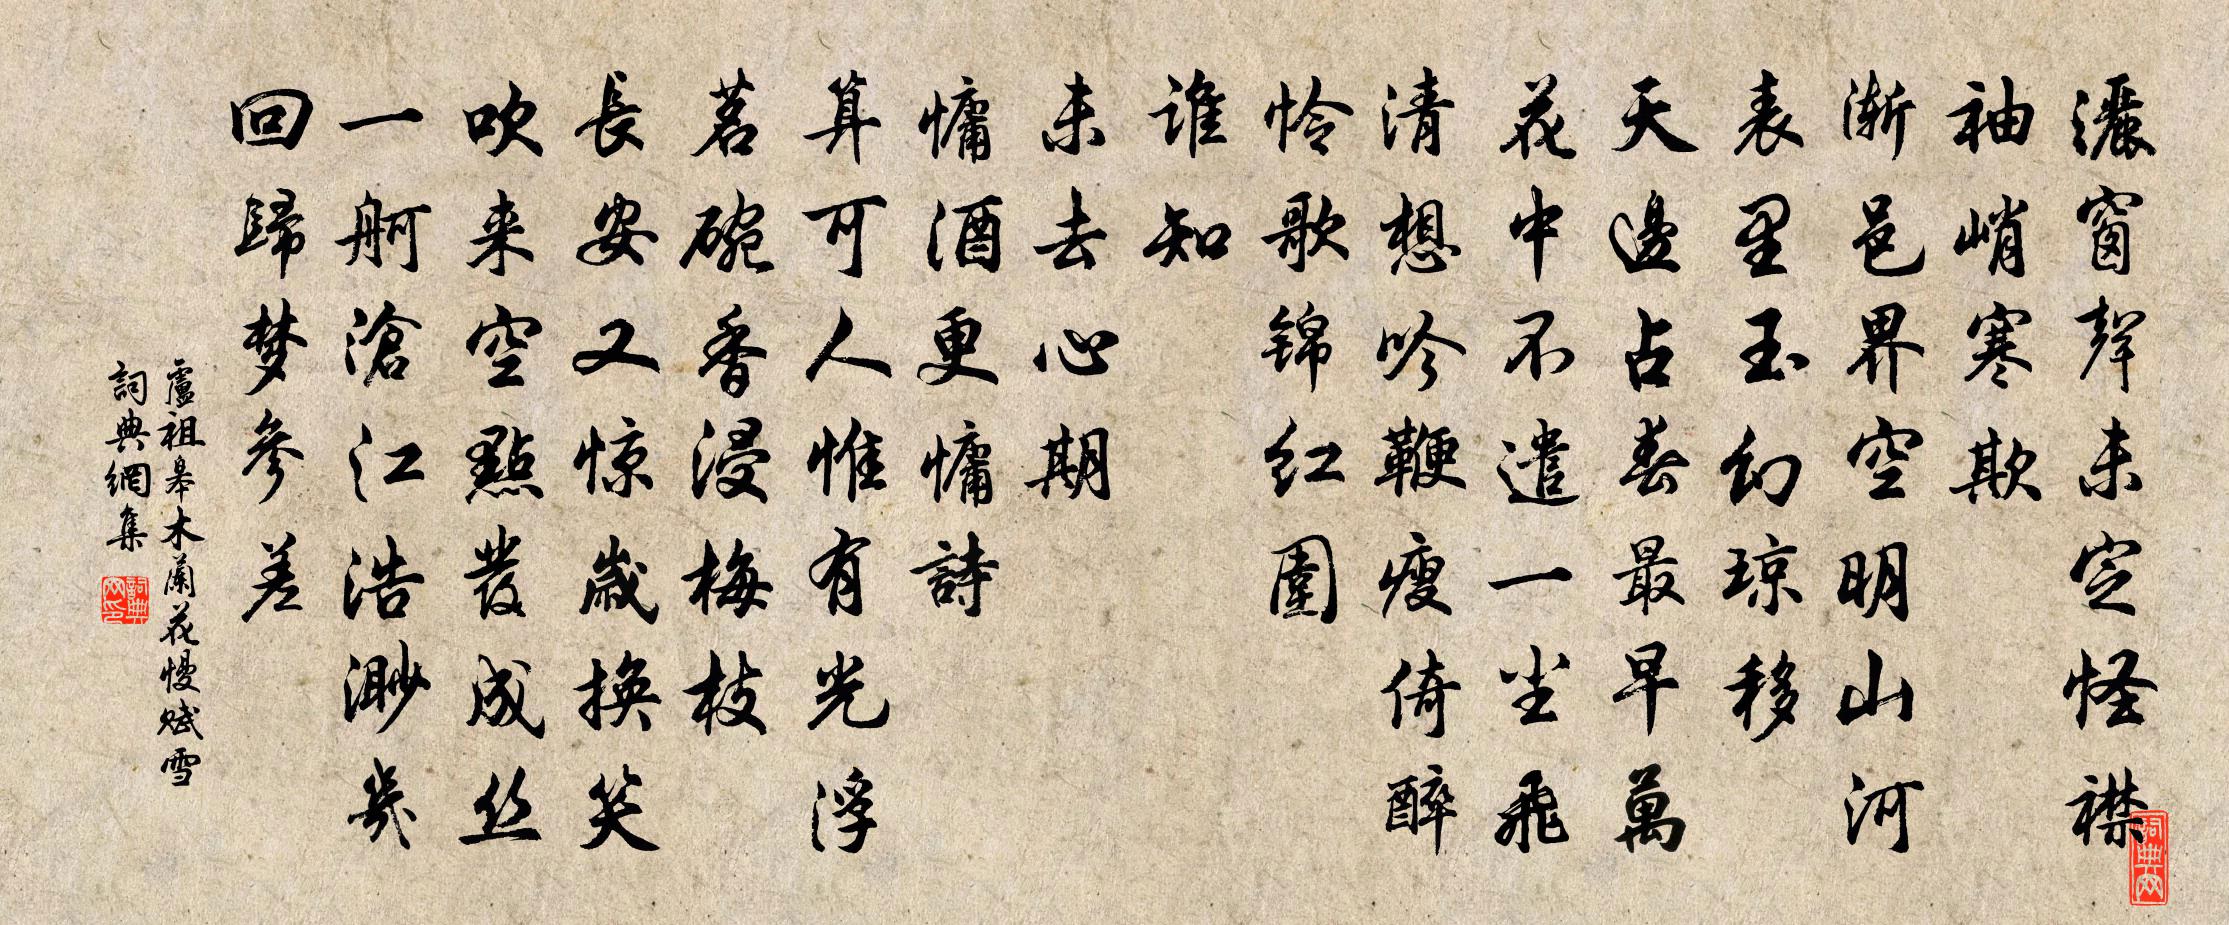 灑窗聲未定怪襟
袖峭寒欺
渐邑界空明山河
表里玉幻琼移
天邊占春最早萬
花中不遣一尘飛
清想吟鞭瘦倚醉
怜歌锦红圍
谁知
未去心期
慵酒更慵詩
算可人惟有光浮
茗碗香浸梅枝
長安又惊歲换笑
吹来空點发成丝
一舸滄江浩渺幾
回歸梦参差
盧祖皋木蘭花慢赋雪
詞典網集
詞典网印
詞典网